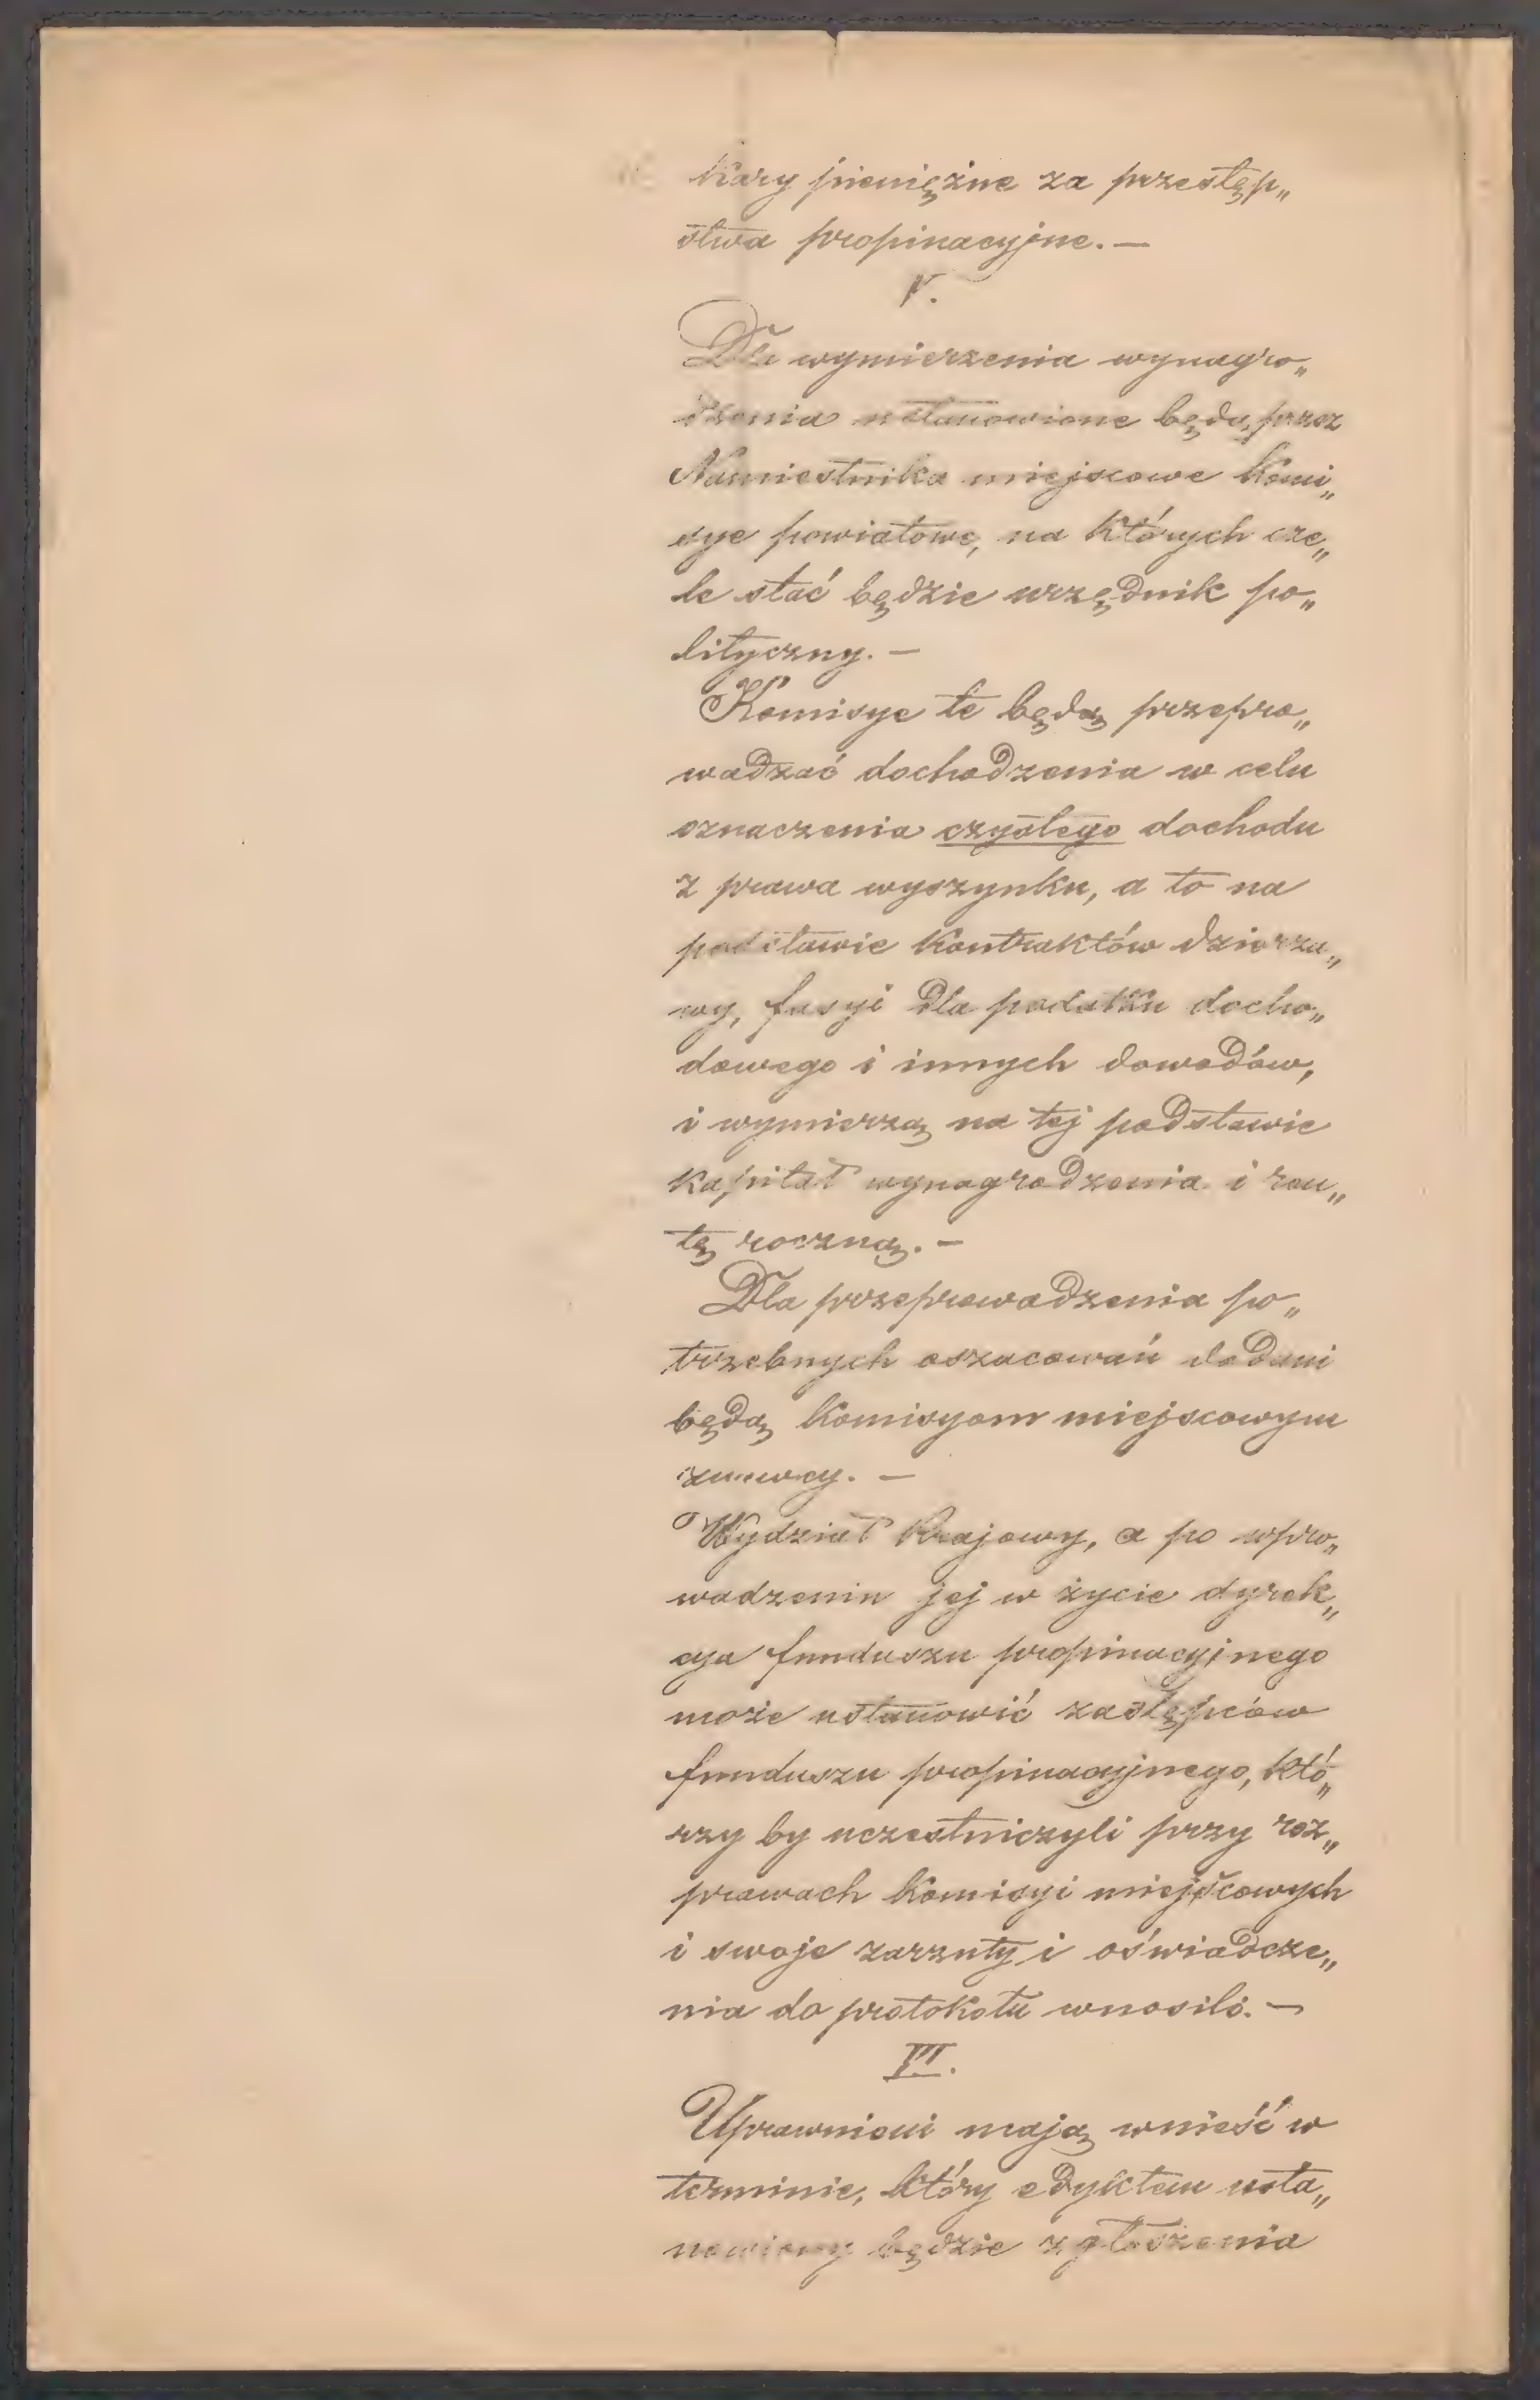 kary pieniężne za przestęp„
stwa propinacyjne. —
V.
Dla wymierzenia wynagro„
dzenia ustanowione będą przez
Namiestnika miejscowe komi„
sye powiatowe, na których cze„
le stać będzie urzędnik po„
lityczny. —
Komisye te będą przepro„
wadzać dochodzenia w celu
oznaczenia czystego dochodu
z prawa wyszynku, a to na
podstawie kontraktów dzierża„
wy, fasyi dla podatku docho„
dowego i innych dowodów,
i wymierzą na tej podstawie
kapitał wynagrodzenia i ren„
tę roczną. —
Dla przeprowadzenia po„
trzebnych oszacowań dodani
będą komisyom miejscowym
znawcy. —
Wydział krajowy, a po wpro„
wadzeniu jej w życie dyrek„
cya funduszu propinacyjnego
może ustanowić zastępców
funduszu propinacyjnego, któ„
rzy by uczestniczyli przy roz„
prawach komisyi miejscowych
i swoje zarzuty i oświadcze„
nia do protokołu wnosili. —
VI.
Uprawnieni mają wnieść w
terminie, który edyktem usta„
nowiony będzie zgłoszenia